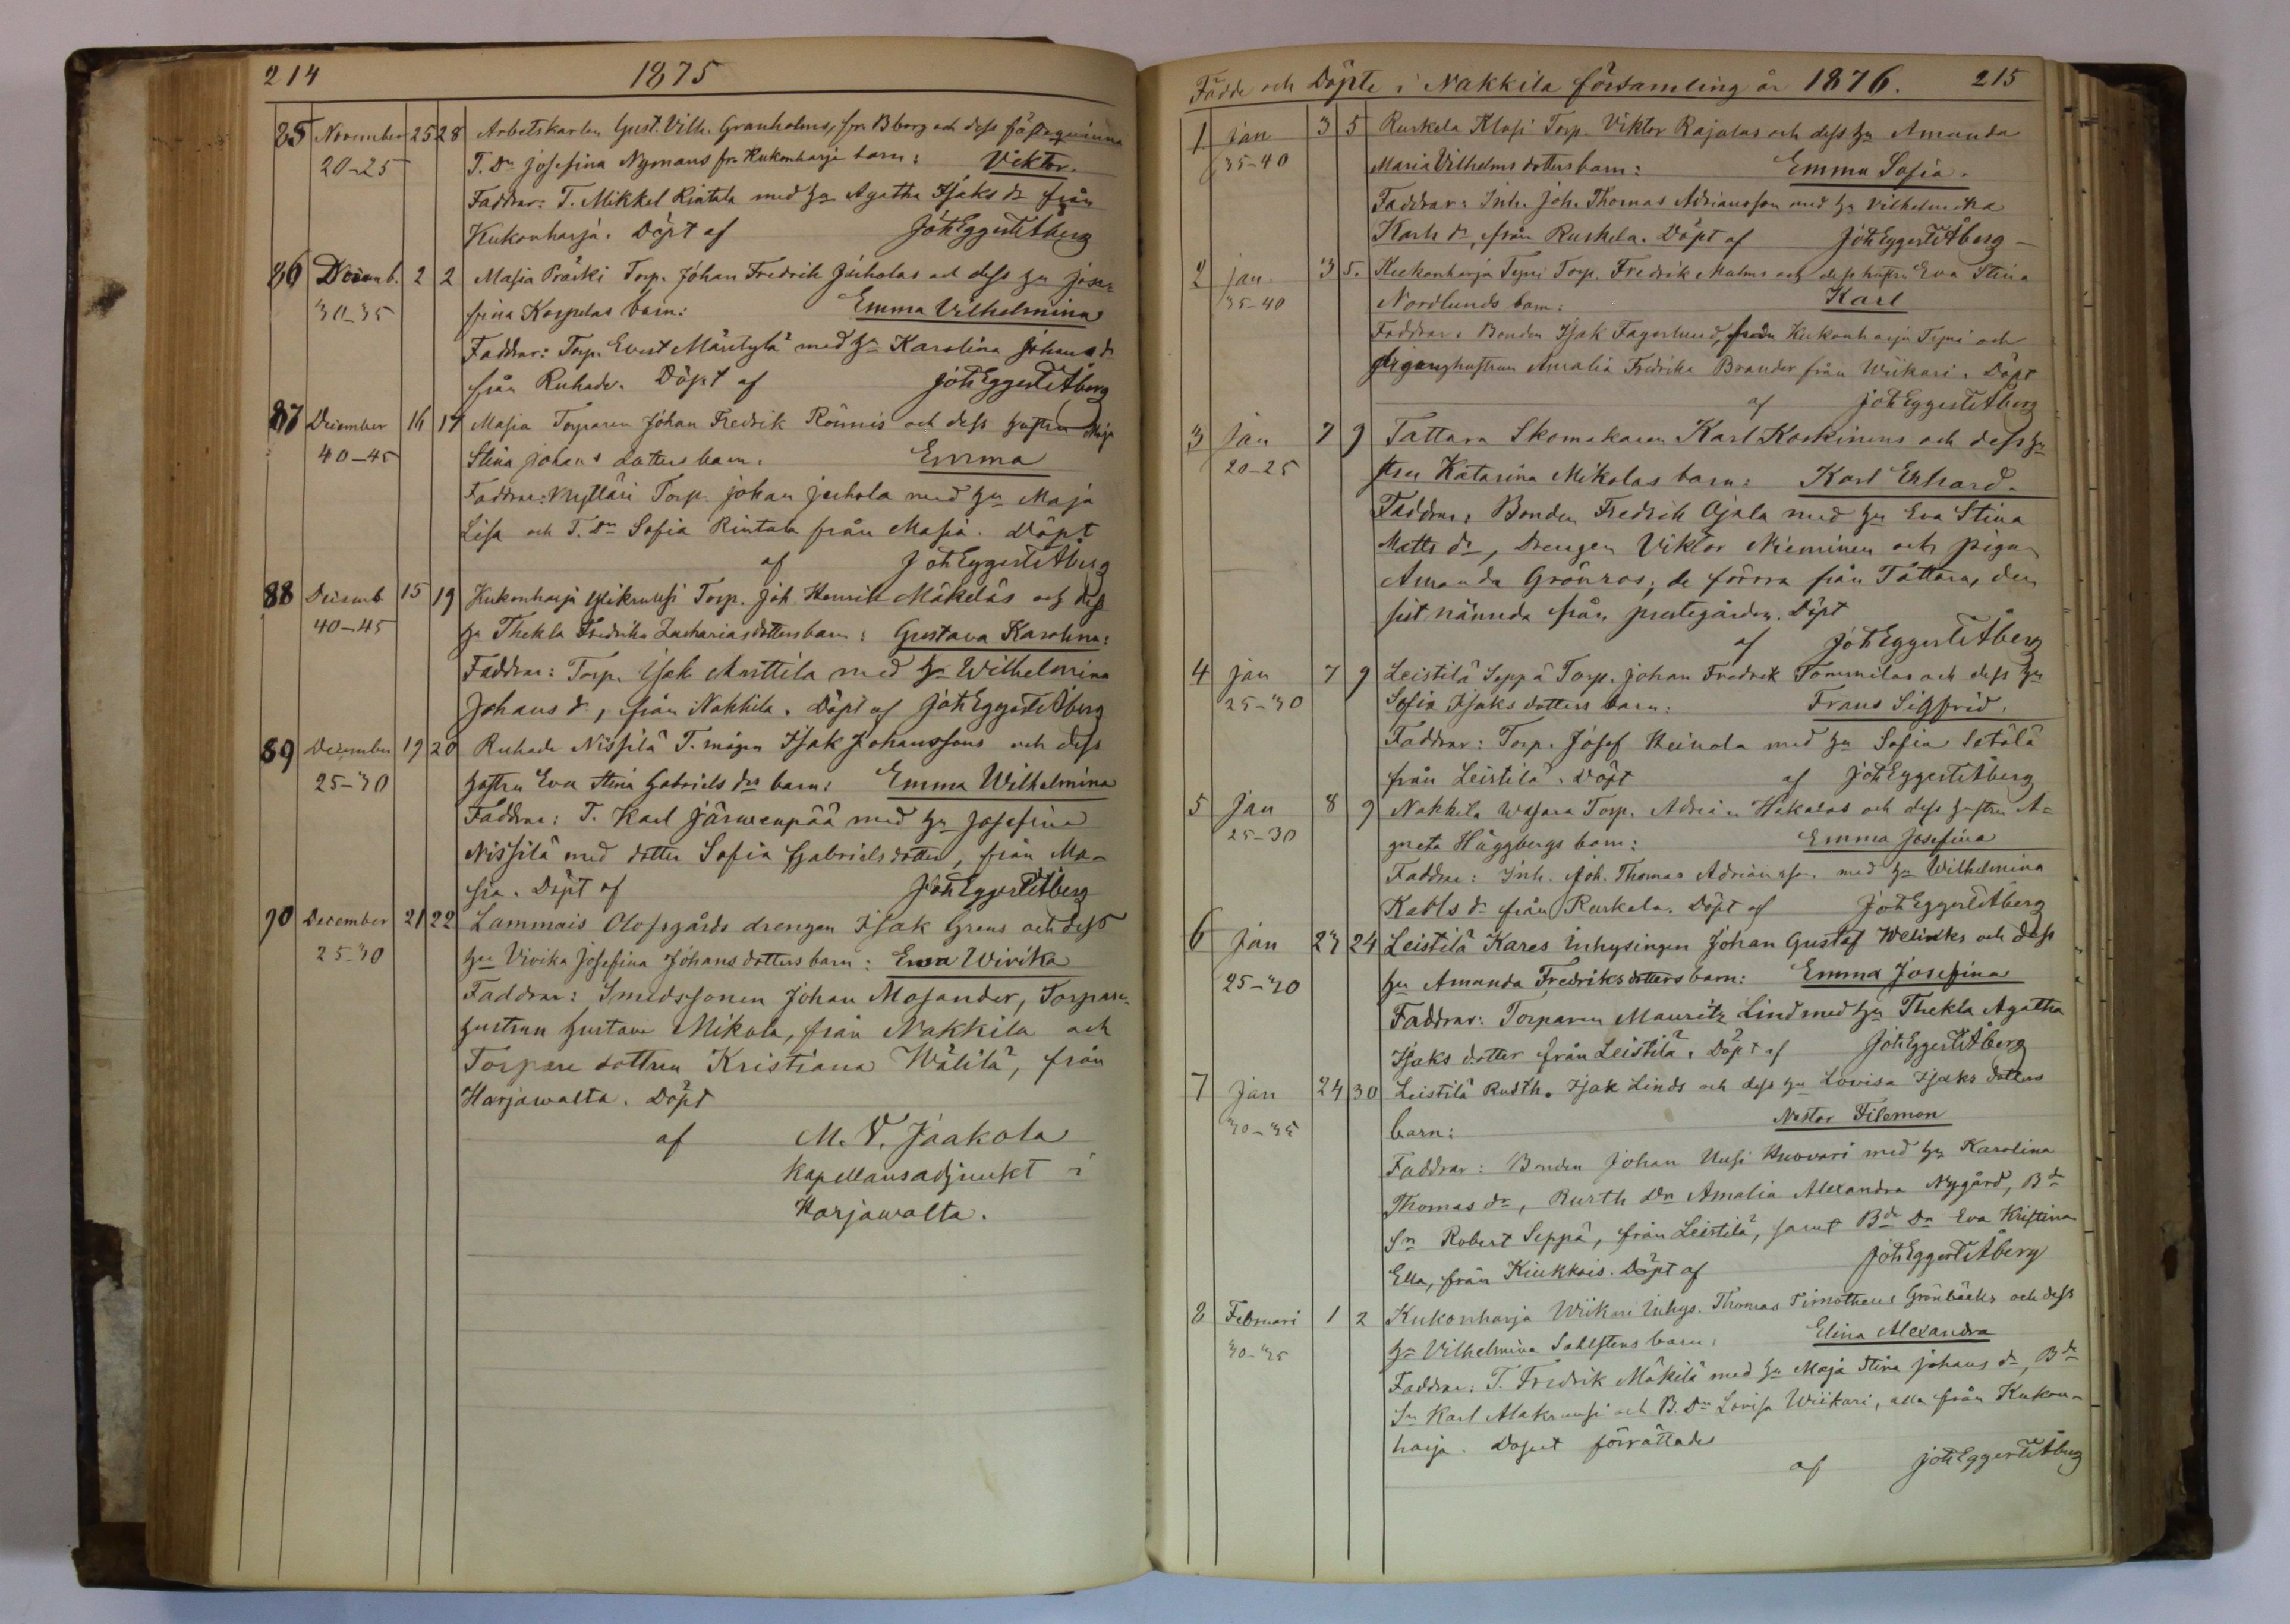 214
1875
85 November 25 28 Arbetskarlen Gust. Vilh. Granholms, frn Bborg och dess fästeqvinna
20-25 T. Dn Josefina Nymans fr. Kukonharja barn: Viktor.
Faddrar: T. Mikkel Rintala med hu Agatha Isaks dr från
Kukonharja. Döpt af Joh Eggert Åberg
86 Decemb. 2 2 Masia Präiki Torp. Johan Fredrik Juholas och dess hu Jose-
30-35 fina Korpelas barn: Emma Vilhelmina
Faddrar: Torp. Evert Mäntylä med hu Karolina Johans dr
från Ruhade. Döpt af Joh Eggert Åberg
87 December 16 17 Masia Torparen Johan Fredrik Rönnis och dess hustru Maja
40-45 Stina Johans dotters barn. Emma
Faddrar: Mylläri Torp. Johan Juhola med hu Maja
Lisa och T. Dn Sofia Rintala från Masia. Döpt
af Joh Eggert Åberg
88 Decemb. 15 19 Kukonharja Torp. Joh. Henrik Mäkeläs och dess
40-45 hu Thekla Fredrika Zachariasdotters barn: Gustava Karolina:
Faddrar: Torp. Isak Anttila med hu Wilhelmina
Johans dr, från Nakkila. Döpt af Joh Eggert Åberg
89 December 19 20 Ruhade Nissilä T. mågen Isak Johanssons och dess
25-30 hustru Eva Stina Gabriels drs barn: Emma Wilhelmina
Faddrar: T. Karl Järwenpää med hu Josefina
Nissilä med dotter Sofia Gabrielsdotter, från Ma-
sia. Döpt af Joh Eggert Åberg
90 December 21 22 Lammais Olofsgårds drengen Isak Grens och dess
25-30 hu Vivika Josefina Johansdotters barn: Emma Wivika
Faddrar: Smedssonen Johan Mosander, Torpare
hustrun Gustava Mikola, från Nakkila och
Torpare dottren Kristiana Wälilä, från
Harjawalta. Döpt
af M. V. Jaakola
Kapellansadjunkt i
Harjawalta.
Födde och Döpte i Nakkila församling år 1876. 215
1. Jan 3 5 Ruskela Klasi Torp. Viktor Rajalas och dess hu Amanda
35-40 Maria Vilhelms dotters barn: Emma Sofia.
Faddrar: Inh. Joh. Thomas Adriansson med hu Vilhelmina
Karls dr, från Ruskela. Döpt af Joh Eggert Åberg
2 Jan. 3 5. Kukonharja Typi Torp. Fredrik Malms och dess hustru Eva Stina
35-40 Nordlunds barn: Karl
Faddrar: Bonden Isak Fagerlund, från Kukonharja Typi och
hustrun Amalia Fredrika Brander från Wiikari. Döpt
af Joh Eggert Åberg
3 Jan 7 9 Tattara Skomakaren Karl Koskinens och dess hu-
20-25 stru Katarina Mikolas barn: Karl Erhard.
Faddrar: Bonden Fredrik Ojala med hu Eva Stina
Matts dr, Drengen Viktor Nieminen och pigan
Amanda Grönroos; de förra från Tattara, den
sist nämnda från prestegården. Döpt
af Joh Eggert Åberg
4 Jan 7 9 Leistilä Seppä Torp. Johan Fredrik Tommilas och dess hu
25-30 Sofia Isaks dotters barn: Frans Sigfrid.
Faddrar: Torp. Josef Heinola med hu Sofia Setälä
från Leistilä. Döpt af Joh Eggert Åberg
5 Jan 8 9 Nakkila Wasara Torp. Adrian Hakalas och dess hustru A-
25-30 gneta Häggbergs barn: Emma Josefina
Faddrar: Inh. Joh. Thomas Adrianss. med hu Wilhelmina
Karls dr från Ruskela. Döpt af Joh Eggert Åberg
6 Jan 23 24 Leistilä Kares Inhysingen Johan Gustaf Weliniks och dess
25-30 hu Amanda Fredriksdotters barn: Emma Josefina
Faddrar: Torparen Mauritz Lind med hu Thekla Agatha
Isaks dotter från Leistilä. Döpt af Joh Eggert Åberg
7 Jan 24 30 Leistilä Rusth. Isak Linds och dess hu Lovisa Isaks dotters
30-35 barn: Nestor Filemon
Faddrar: Bonden Johan Uusi Knuvari med hu Karolina
Thomas dr, Rusth Dn Amalia Alexandra Nygård, Bde
Sn Robert Seppä, från Leistilä, samt Bde Dn Eva Kristina
Ella, från Kiukkois. Döpt af Joh Eggert Åberg
8 Februari 1 2 Kukonharja Wiikari Inhys. Thomas Timotheus Grönbäcks och dess
30-35 hu Vilhelmina Sahlstens barn: Elina Alexandra
Faddrar: T. Fredrik Mäkilä med hu Maja Stina Johans dr, Bde
Sn Karl Alakruusi och B. Dn Lovisa Wiikari, alla från Kukon-
harja. Dopet förrättades
af Joh Eggert Åberg